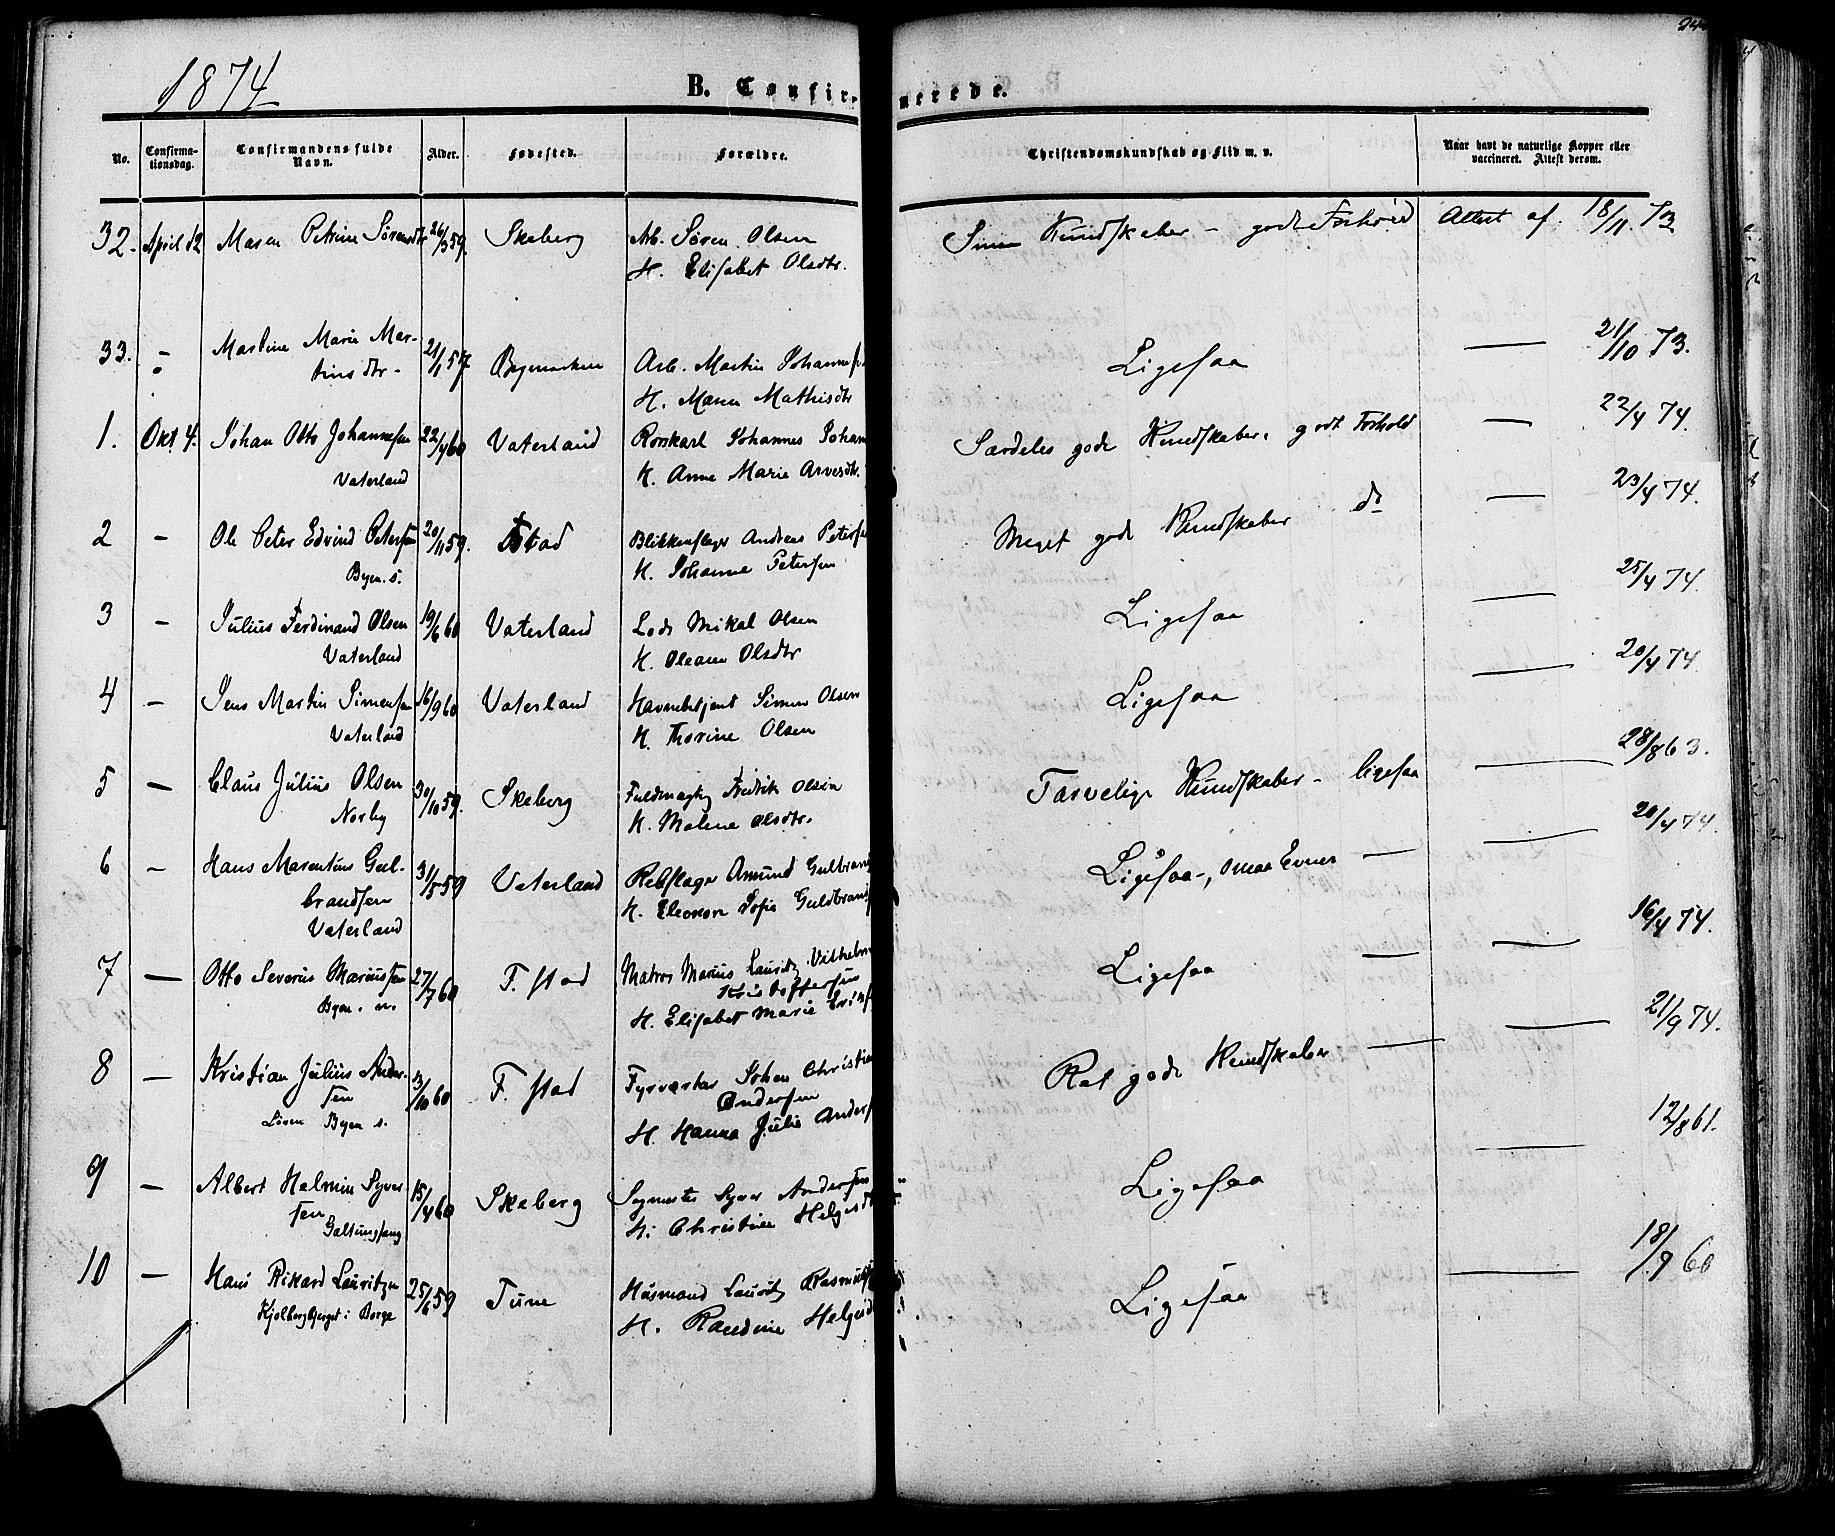 1874
B. Confirmerede.
No.
Confirma-
tionsdag.
Confirmandens fulde
Navn.
Alder.
Fødested.
Forældre.
Christendomskundskab og Flid m. v.
Naar havt de naturlige Kopper eller
vaccineret. Attest derom.
32. April 12 Maren Petrine Sørensdtr 26/3 59. Skeberg Arb. Søren Olsen Kundskaber - godt Forhold Attest af. 18/11 73
H. Elisabet Olsdtr.
33. - Martine Marie Mar-
tinsdtr - 21/1 57 Bymarken Arb. Martin Ligesaa — 21/10 73.
H. Maren Mathisdtr
1. Okt 4. Johan Otto Johannesen 22/4 60 Vaterland Rorskarl Johannes Særdeles gode Kundskaber, godt Forhold — 22/4 74.
Vaterland H. Anne Marie Arvesdtr.
2 - Ole Peter Edvind Petersen 20/11 59. F.stad Blikkenslager Andreas Petersen Meget gode Kundskaber do — 23/4 74.
Byen. s. H. Johanne Petersen
3 - Julius Ferdinand Olsen 19/6 60 Vaterland Lods Mikal Olsen Ligesaa — 25/4 74.
Vaterland H. Oleane Olsdtr
4 - Jens Martin Simensen 16/9 60 Vaterland Havnebetjent Simen Olsen Ligesaa — 20/4 74
Vaterland H. Thorine Olsen
5 — Claus Julius Olsen 30/10 59. Skeberg Fuldmægtig Fredrik Olsen Tarvelige Kundskaber - ligesaa — 28/8 63.
Norby H. Malene Olsdtr.
6 - Hans Marentius Gul-
brandsen 31/5 59 Vaterland Rebslager Amund Ligesaa -, smaa Evner — — 20/4 74.
Vaterland H. Eleonore Sofie
7 — Otto Severin Mariussen 27/7 60 F. stad Matros Marius Lauritz Vilhelm Ligesaa — — 16/4 74.
Byen. n. Kristoffersen
H. Elisabet Marie
8 — Kristian Julius Ander-
sen 13/10 60 F. stad Fyrværker Johan Christian Ret gode Kundskaber — — 21/9 74.
Byen s. Andersen
H. Hanna Julie
9 — Albert Helmin Syver
sen 15/4 60 Skeberg Syver Andersen Ligesaa — 12/8 61.
H. Christine
10 — Hans Rikard Lauritzen 25/6 59 Tune Husmand Lauritz Ligesaa — 18/9 60
i Borge H. Randine